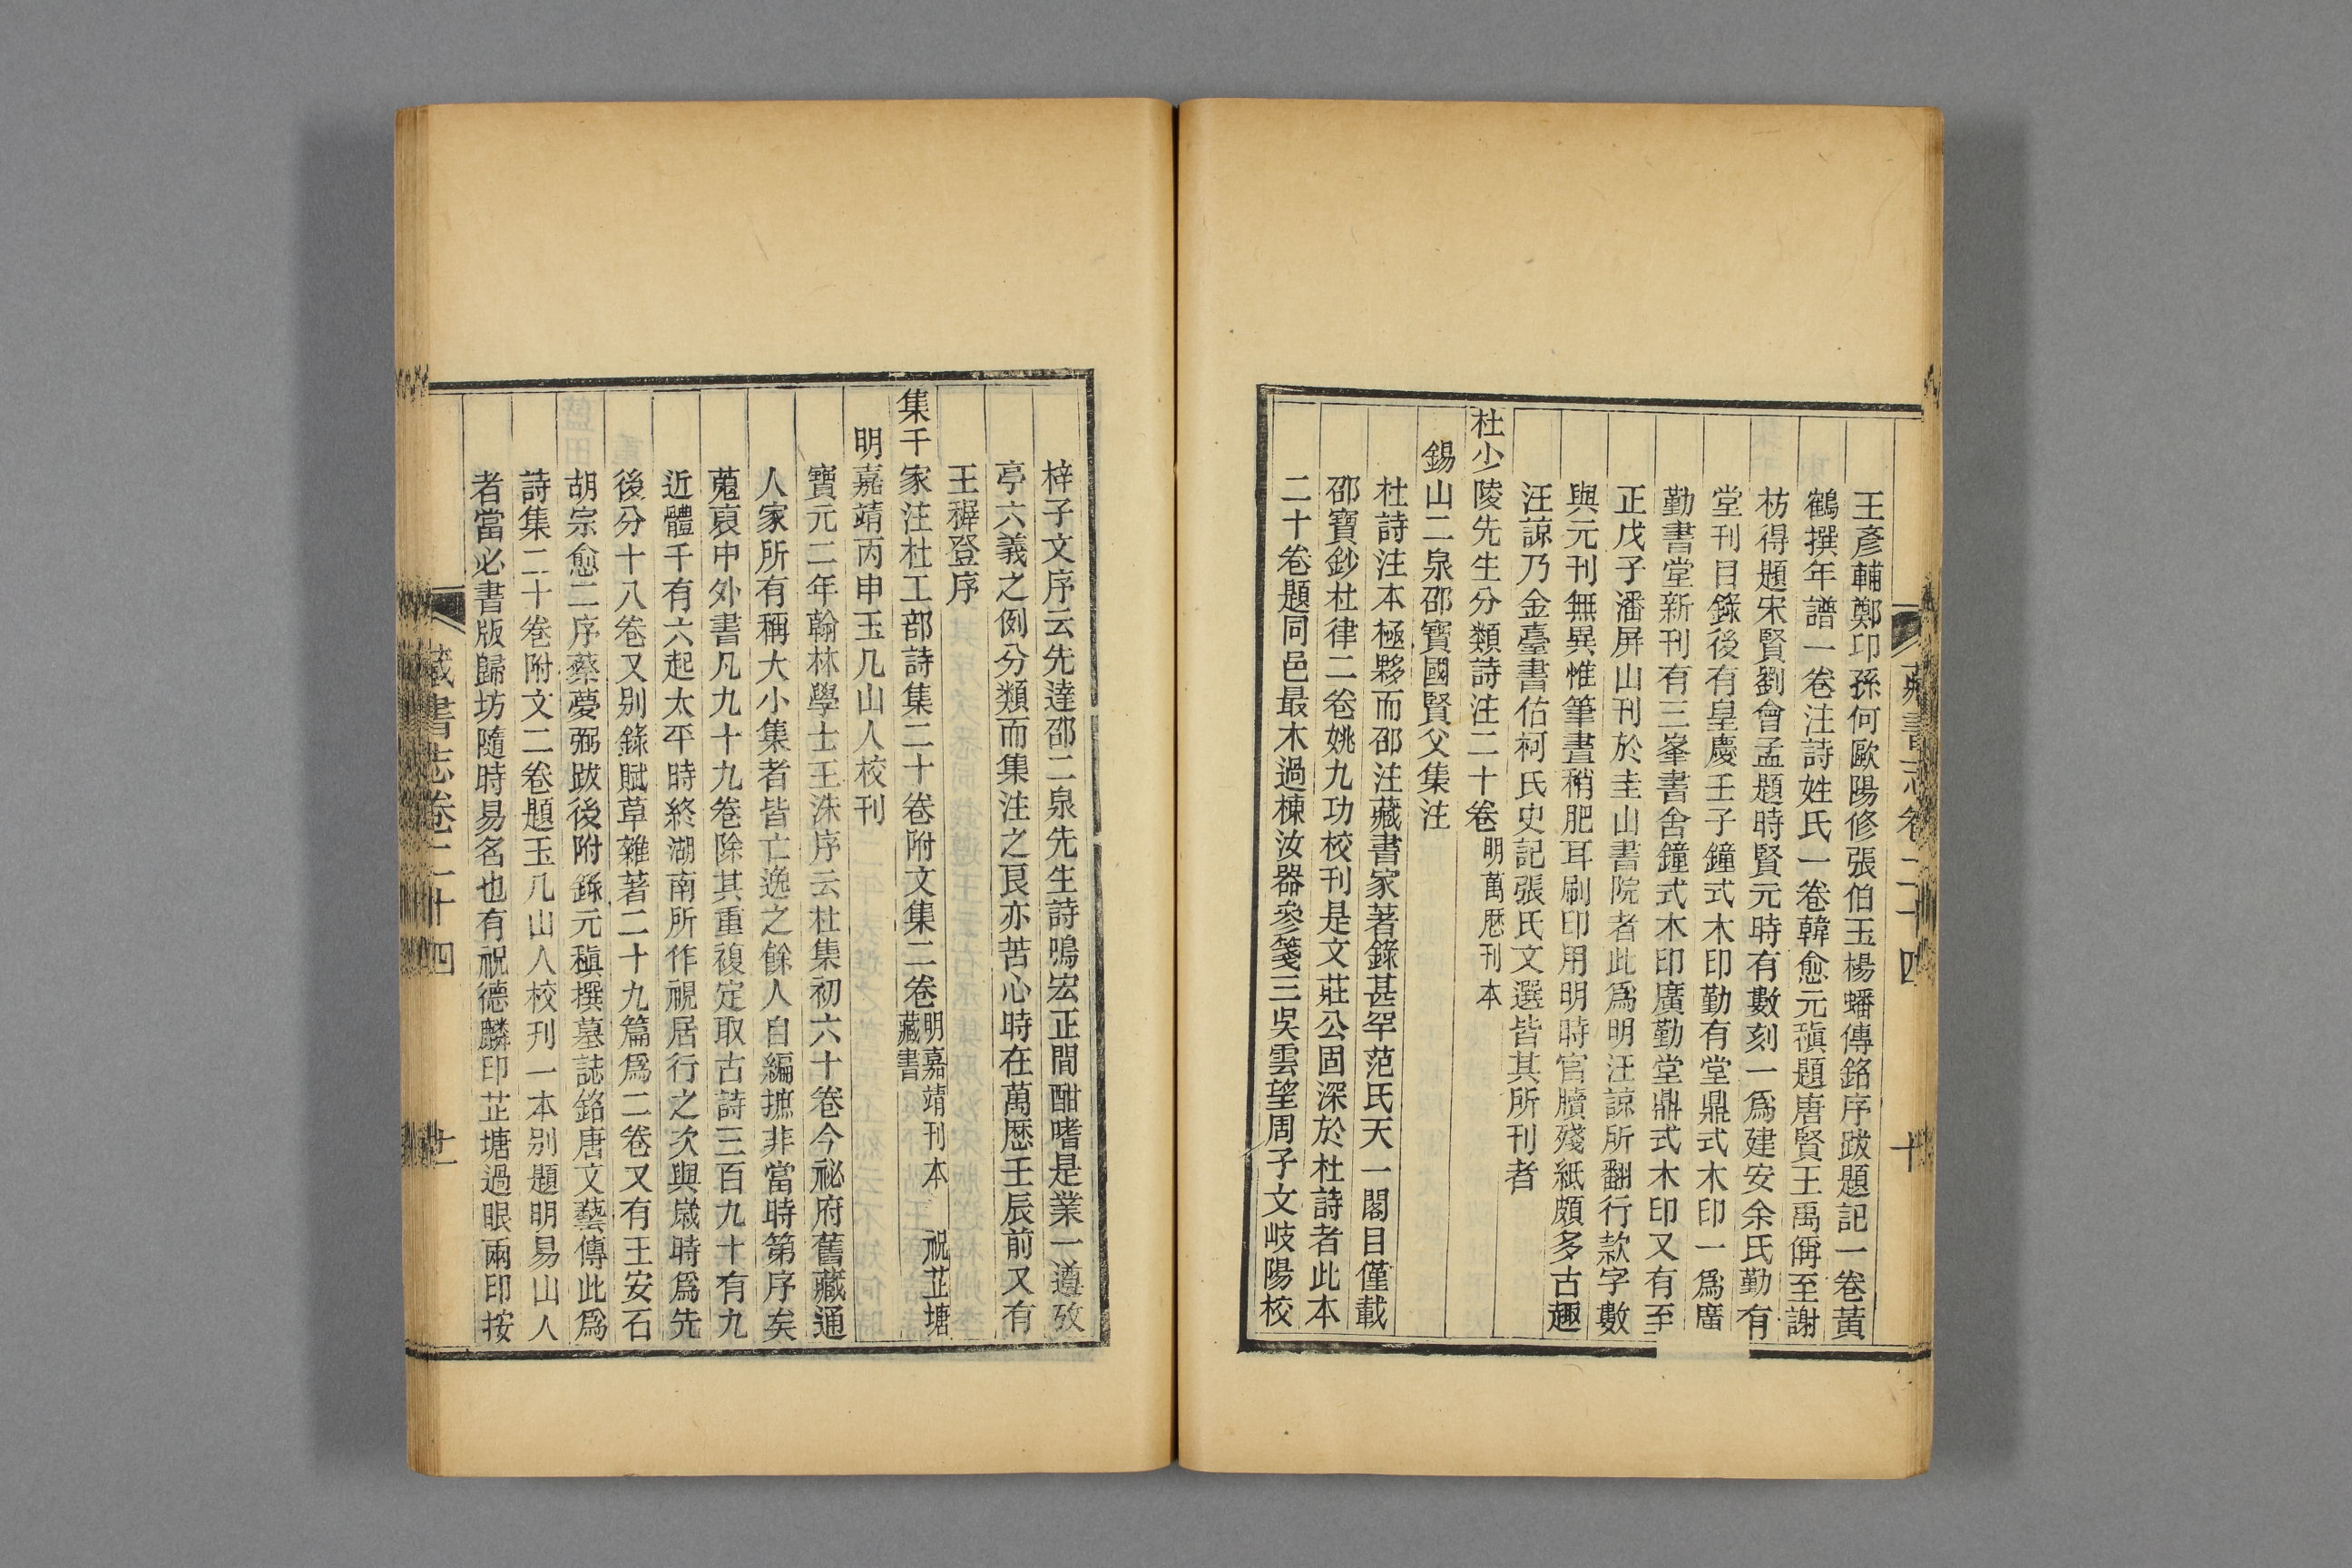 藏書志卷二十四 十
王彥輔鄭卬孫何歐陽修張伯玉楊蟠傳銘序跋題記一卷黃
鶴撰年譜一卷注詩姓氏一卷韓愈元稹題唐賢王禹偁至謝
枋得題宋賢劉會孟題時賢元時有數刻一爲建安余氏勤有
堂刊目錄後有皇慶壬子鐘式木印勤有堂鼎式木印一爲廣
勤書堂新刊有三峯書舍鐘式木印廣勤堂鼎式木印又有至
正戊子潘屏山刊於圭山書院者此爲明汪諒所翻行款字數
與元刊無異惟筆畫稍肥耳刷印用明時官牘殘紙頗多古趣
汪諒乃金臺書估柯氏史記張氏文選皆其所刊者
杜少陵先生分類詩注二十卷明萬厯刊本
錫山二泉邵寶國賢父集注
杜詩注本極夥而邵注藏書家著錄甚罕范氏天一閣目僅載
邵寶鈔杜律二卷姚九功校刊是文莊公固深於杜詩者此本
二十卷題同邑最木過棟汝器參箋三吳雲望周子文岐陽校
梓子文序云先達邵二泉先生詩鳴宏正間酣嗜是業一遵攷
亭六義之例分類而集注之艮亦苦心時在萬厯壬辰前又有
王穉登序
集千家注杜工部詩集二十卷附文集二卷明嘉靖刊本 祝芷塘藏書
明嘉靖丙申玉几山人校刊
寶元二年翰林學士王洙序云杜集初六十卷今祕府舊藏通
人家所有稱大小集者皆亡逸之餘人自編摭非當時第序矣
蒐裒中外書凡九十九卷除其重複定取古詩三百九十有九
近體千有六起太平時終湖南所作視居行之次與嵗時爲先
後分十八卷又别錄賦草雜著二十九篇爲二卷又有王安石
胡宗愈二序蔡夢弼跋後附錄元稹撰墓誌銘唐文藝傳此爲
詩集二十卷附文二卷題玉几山人校刊一本别題明易山人
者當必書版歸坊隨時易名也有祝德麟印芷塘過眼兩印按
藏書志卷二十四 十一